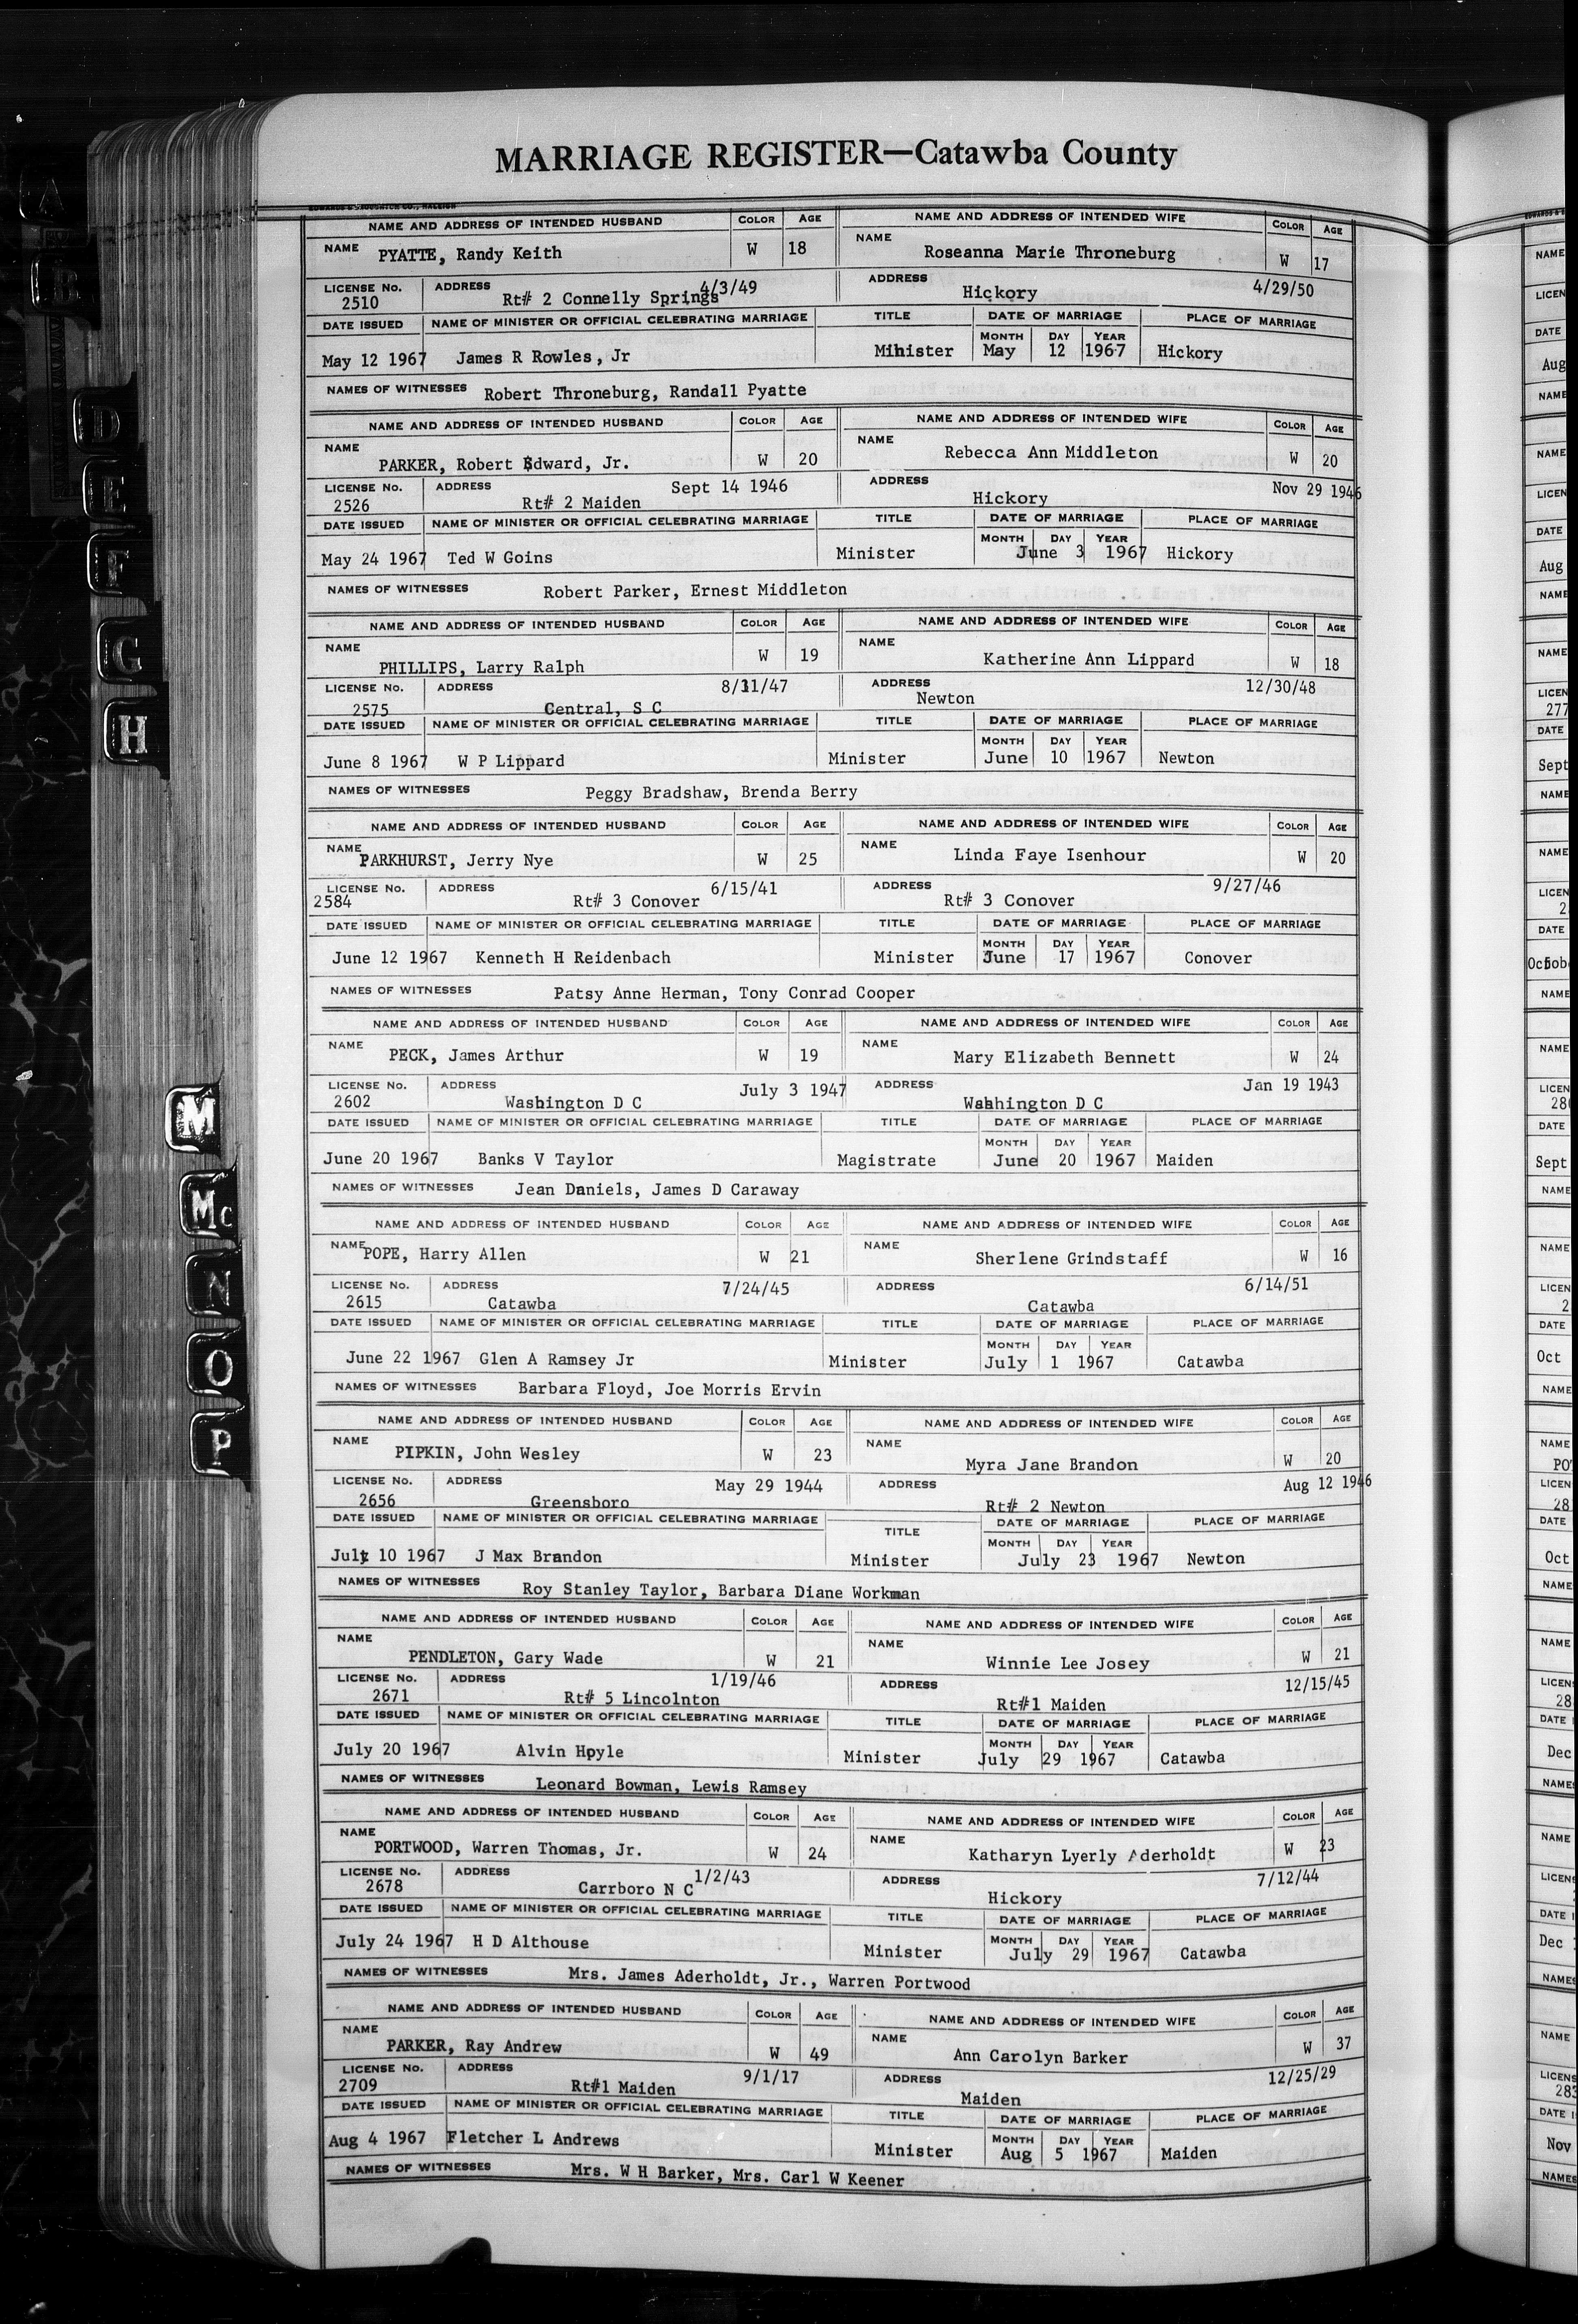 MARRIAGE REGISTER—Catawba County
NAME AND ADDRESS OF INTENDED HUSBAND COLOR AGE NAME AND ADDRESS OF INTENDED WIFE COLOR AGE
NAME PYATTE, Randy Keith W 18 NAME Roseanna Marie Throneburg W 17
LICENSE No. 2510 ADDRESS Rt# 2 Connelly Springs 4/3/49 ADDRESS Hickory 4/29/50
DATE ISSUED NAME OF MINISTER OR OFFICIAL CELEBRATING MARRIAGE TITLE DATE OF MARRIAGE PLACE OF MARRIAGE
MONTH DAY YEAR
May 12 1967 James R Rowles, Jr Minister May 12 1967 Hickory
NAMES OF WITNESSES Robert Throneburg, Randall Pyatte
NAME AND ADDRESS OF INTENDED HUSBAND COLOR AGE NAME AND ADDRESS OF INTENDED WIFE COLOR AGE
NAME PARKER, Robert Edward, Jr. W 20 NAME Rebecca Ann Middleton W 20
LICENSE No. 2526 ADDRESS Rt# 2 Maiden Sept 14 1946 ADDRESS Hickory Nov 29 1946
DATE ISSUED NAME OF MINISTER OR OFFICIAL CELEBRATING MARRIAGE TITLE DATE OF MARRIAGE PLACE OF MARRIAGE
MONTH DAY YEAR
May 24 1967 Ted W Goins Minister June 3 1967 Hickory
NAMES OF WITNESSES Robert Parker, Ernest Middleton
NAME AND ADDRESS OF INTENDED HUSBAND COLOR AGE NAME AND ADDRESS OF INTENDED WIFE COLOR AGE
NAME PHILLIPS, Larry Ralph W 19 NAME Katherine Ann Lippard W 18
LICENSE No. 2575 ADDRESS Central, S C 8/31/47 ADDRESS Newton 12/30/48
DATE ISSUED NAME OF MINISTER OR OFFICIAL CELEBRATING MARRIAGE TITLE DATE OF MARRIAGE PLACE OF MARRIAGE
MONTH DAY YEAR
June 8 1967 W P Lippard Minister June 10 1967 Newton
NAMES OF WITNESSES Peggy Bradshaw, Brenda Berry
NAME AND ADDRESS OF INTENDED HUSBAND COLOR AGE NAME AND ADDRESS OF INTENDED WIFE COLOR AGE
NAME PARKHURST, Jerry Nye W 25 NAME Linda Faye Isenhour W 20
LICENSE No. 2584 ADDRESS Rt# 3 Conover 6/15/41 ADDRESS Rt# 3 Conover 9/27/46
DATE ISSUED NAME OF MINISTER OR OFFICIAL CELEBRATING MARRIAGE TITLE DATE OF MARRIAGE PLACE OF MARRIAGE
MONTH DAY YEAR
June 12 1967 Kenneth H Reidenbach Minister June 17 1967 Conover
NAMES OF WITNESSES Patsy Anne Herman, Tony Conrad Cooper
NAME AND ADDRESS OF INTENDED HUSBAND COLOR AGE NAME AND ADDRESS OF INTENDED WIFE COLOR AGE
NAME PECK, James Arthur W 19 NAME Mary Elizabeth Bennett W 24
LICENSE No. 2602 ADDRESS Washington D C July 3 1947 ADDRESS Washington D C Jan 19 1943
DATE ISSUED NAME OF MINISTER OR OFFICIAL CELEBRATING MARRIAGE TITLE DATE OF MARRIAGE PLACE OF MARRIAGE
MONTH DAY YEAR
June 20 1967 Banks V Taylor Magistrate June 20 1967 Maiden
NAMES OF WITNESSES Jean Daniels, James D Caraway
NAME AND ADDRESS OF INTENDED HUSBAND COLOR AGE NAME AND ADDRESS OF INTENDED WIFE COLOR AGE
NAME POPE, Harry Allen W 21 NAME Sherlene Grindstaff W 16
LICENSE No. 2615 ADDRESS Catawba 7/24/45 ADDRESS Catawba 6/14/51
DATE ISSUED NAME OF MINISTER OR OFFICIAL CELEBRATING MARRIAGE TITLE DATE OF MARRIAGE PLACE OF MARRIAGE
MONTH DAY YEAR
June 22 1967 Glen A Ramsey Jr Minister July 1 1967 Catawba
NAMES OF WITNESSES Barbara Floyd, Joe Morris Ervin
NAME AND ADDRESS OF INTENDED HUSBAND COLOR AGE NAME AND ADDRESS OF INTENDED WIFE COLOR AGE
NAME PIPKIN, John Wesley W 23 NAME Myra Jane Brandon W 20
LICENSE No. 2656 ADDRESS Greensboro May 29 1944 ADDRESS Rt# 2 Newton Aug 12 1946
DATE ISSUED NAME OF MINISTER OR OFFICIAL CELEBRATING MARRIAGE TITLE DATE OF MARRIAGE PLACE OF MARRIAGE
MONTH DAY YEAR
July 10 1967 J Max Brandon Minister July 23 1967 Newton
NAMES OF WITNESSES Roy Stanley Taylor, Barbara Diane Workman
NAME AND ADDRESS OF INTENDED HUSBAND COLOR AGE NAME AND ADDRESS OF INTENDED WIFE COLOR AGE
NAME PENDLETON, Gary Wade W 21 NAME Winnie Lee Josey W 21
LICENSE No. 2671 ADDRESS Rt# 5 Lincolnton 1/19/46 ADDRESS Rt#1 Maiden 12/15/45
DATE ISSUED NAME OF MINISTER OR OFFICIAL CELEBRATING MARRIAGE TITLE DATE OF MARRIAGE PLACE OF MARRIAGE
MONTH DAY YEAR
July 20 1967 Alvin Hoyle Minister July 29 1967 Catawba
NAMES OF WITNESSES Leonard Bowman, Lewis Ramsey
NAME AND ADDRESS OF INTENDED HUSBAND COLOR AGE NAME AND ADDRESS OF INTENDED WIFE COLOR AGE
NAME PORTWOOD, Warren Thomas, Jr. W 24 NAME Katharyn Lyerly Aderholdt W 23
LICENSE No. 2678 ADDRESS Carrboro N C 1/2/43 ADDRESS Hickory 7/12/44
DATE ISSUED NAME OF MINISTER OR OFFICIAL CELEBRATING MARRIAGE TITLE DATE OF MARRIAGE PLACE OF MARRIAGE
MONTH DAY YEAR
July 24 1967 H D Althouse Minister July 29 1967 Catawba
NAMES OF WITNESSES Mrs. James Aderholdt, Jr., Warren Portwood
NAME AND ADDRESS OF INTENDED HUSBAND COLOR AGE NAME AND ADDRESS OF INTENDED WIFE COLOR AGE
NAME PARKER, Ray Andrew W 49 NAME Ann Carolyn Barker W 37
LICENSE No. 2709 ADDRESS Rt#1 Maiden 9/1/17 ADDRESS Maiden 12/25/29
DATE ISSUED NAME OF MINISTER OR OFFICIAL CELEBRATING MARRIAGE TITLE DATE OF MARRIAGE PLACE OF MARRIAGE
MONTH DAY YEAR
Aug 4 1967 Fletcher L Andrews Minister Aug 5 1967 Maiden
NAMES OF WITNESSES Mrs. W H Barker, Mrs. Carl W Keener
A
B
D
E
F
G
H
M
Mc
N
O
P